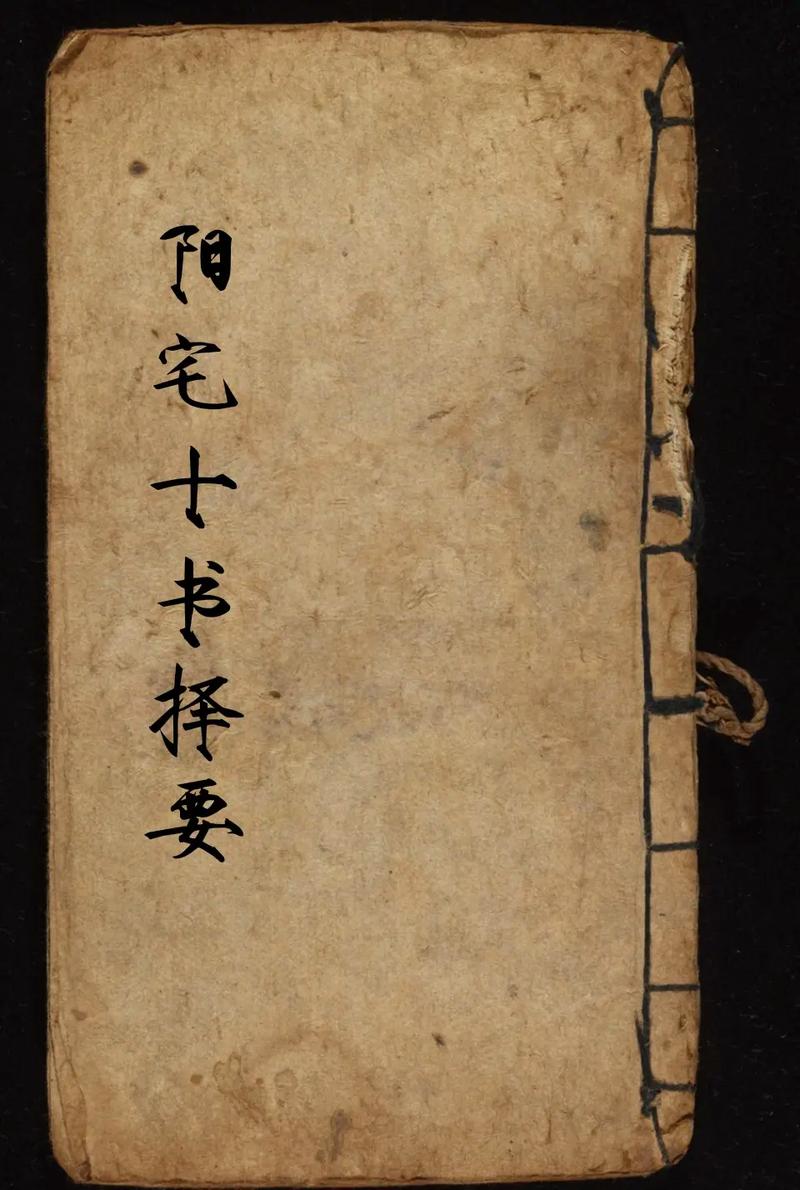 阳宅十书择要